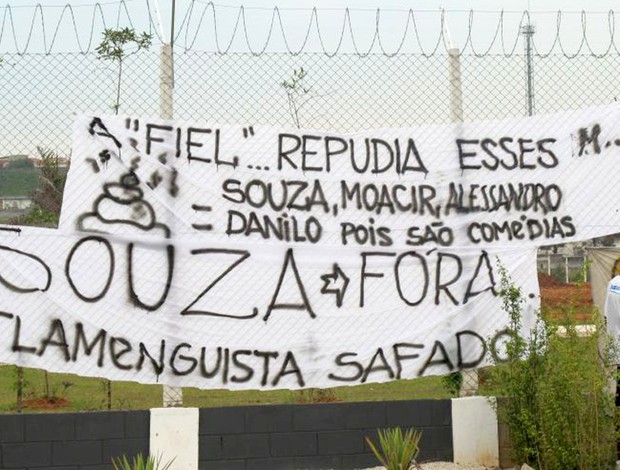 A "FIEL"... REPUDIA ESSES M...
= SOUZA, MOACIR, ALESSANDRO
DANILO POIS SÃO COMÉDIAS
SOUZA ⇨ FÓRA.
FLAMENGUISTA SAFADO